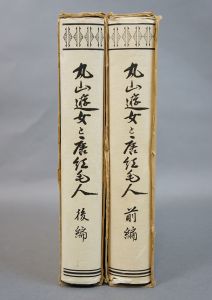 丸山遊女と唐紅毛人
前編
丸山遊女と唐紅毛人
後編